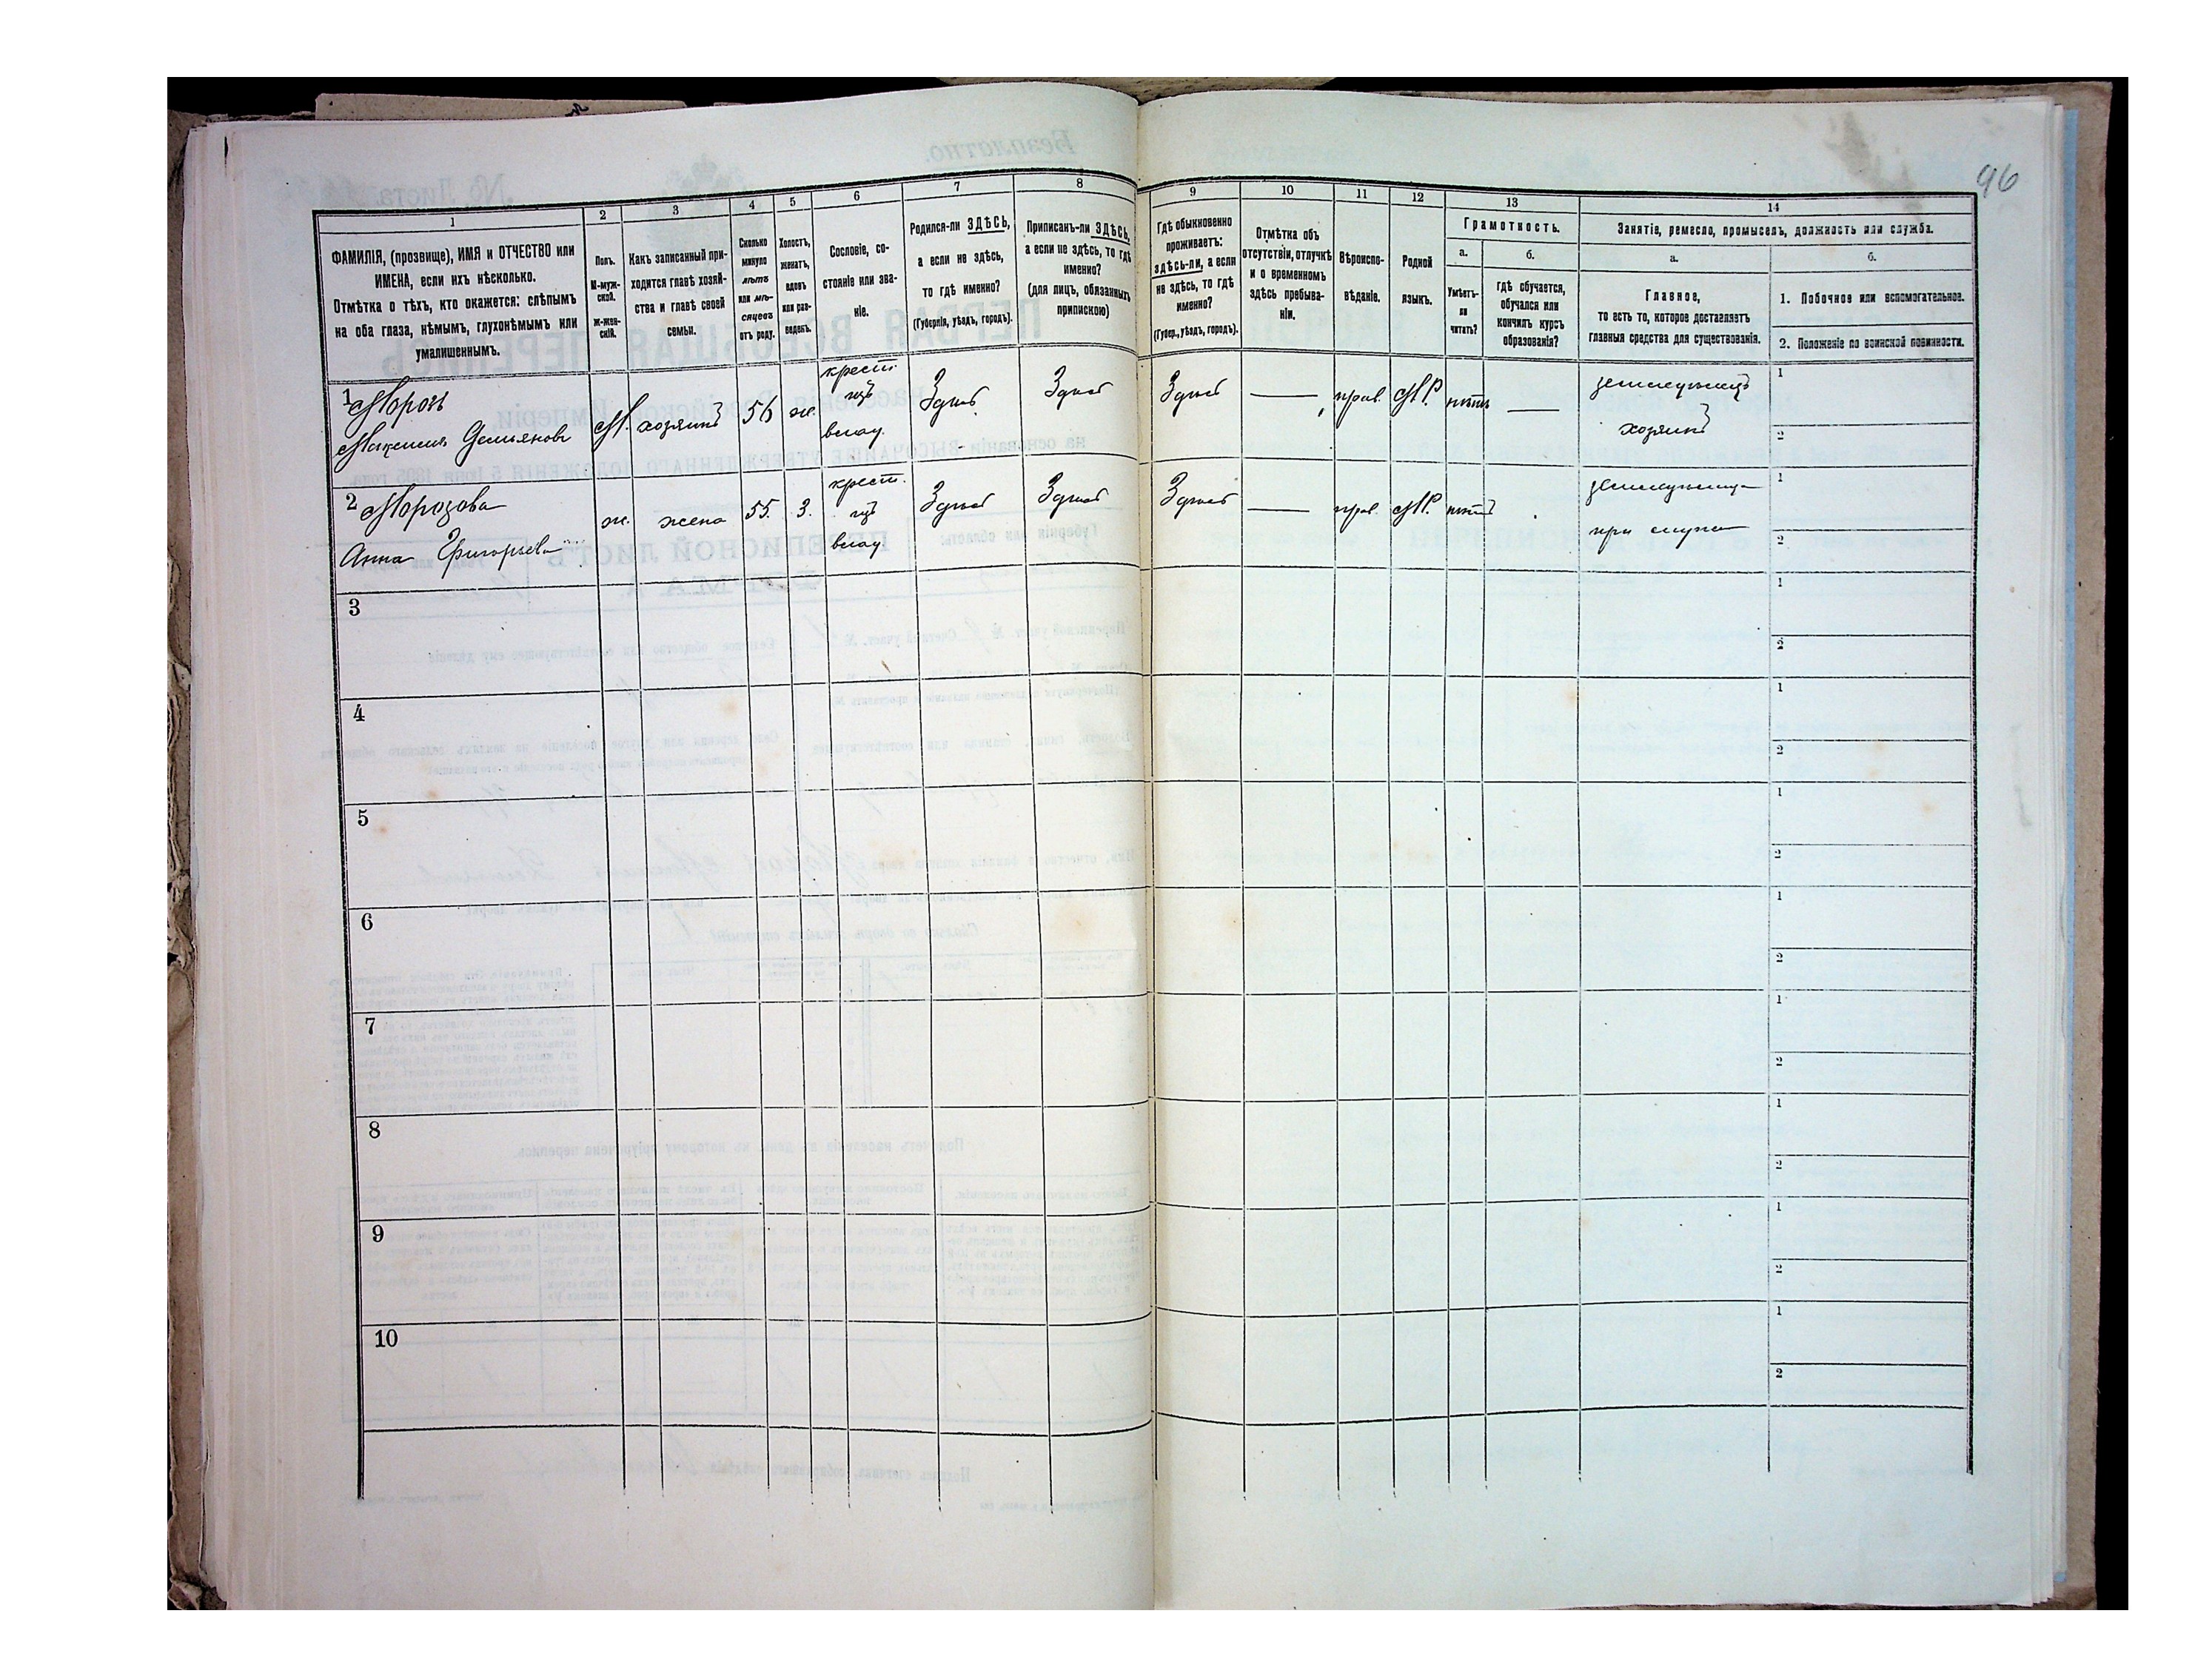 96
1
2
3
4
5
6
7
8
9
10
11
12
13
14
ФАМИЛІЯ, (прозвище), ИМЯ и ОТЧЕСТВО или
ИМЕНА, если ихъ нѣсколько.
Отмѣтка о тѣхъ, кто окажется: слѣпымъ
на оба глаза, нѣмымъ, глухонѣмымъ или
умалишеннымъ.
Полъ.
М-муж-
ской.
Ж-жен-
скій.
Какъ записанный при-
ходится главѣ хозяй-
ства и главѣ своей
семьи.
Сколько
минуло
лѣтъ
или мѣ-
сяцевъ
отъ роду.
Холостъ,
женатъ,
вдовъ
или раз-
веденъ.
Сословіе, со-
стояніе или зва-
ніе.
Родился-ли ЗДѢСЬ,
а если не здѣсь,
то гдѣ именно?
(Губернія, уѣздъ, городъ).
Приписанъ-ли ЗДѢСЬ,
а если не здѣсь, то гдѣ
именно?
(для лицъ, обязанныхъ
припискою)
Гдѣ обыкновенно
проживаетъ:
здѣсь-ли, а если
не здѣсь, то гдѣ
именно?
(Губер., уѣздъ, городъ).
Отмѣтка объ
отсутствіи, отлучкѣ
и о временномъ
здѣсь пребыва-
ніи.
Вѣроиспо-
вѣданіе.
Родной
языкъ.
Грамотность.
а.
Умѣетъ-
ли
читать?
б.
гдѣ обучается,
обучался или
кончилъ курсъ
образованія?
Занятіе, ремесло, промыселъ, должность или служба.
а.
Главное,
то есть то, которое доставляетъ
главныя средства для существованія.
б.
1. Побочное или вспомогательное.
2. Положеніе по воинской повинности.
1 Морозъ
Максимъ Демьяновъ
М.
хозяинъ
56
ж.
крест.
изъ
влад.
Здѣсь
Здѣсь
Здѣсь
—
прав.
М.Р.
нѣтъ
—
земледѣлецъ
хозяинъ
1
2
2 Морозова
Анна Григорьева
ж.
жена
55.
З.
крест.
изъ
влад.
Здѣсь
Здѣсь
Здѣсь
—
прав.
М.Р.
нѣтъ
земледѣлица
при мужѣ
1
2
3
1
2
4
1
2
5
1
2
6
1
2
7
1
2
8
1
2
9
1
2
10
1
2